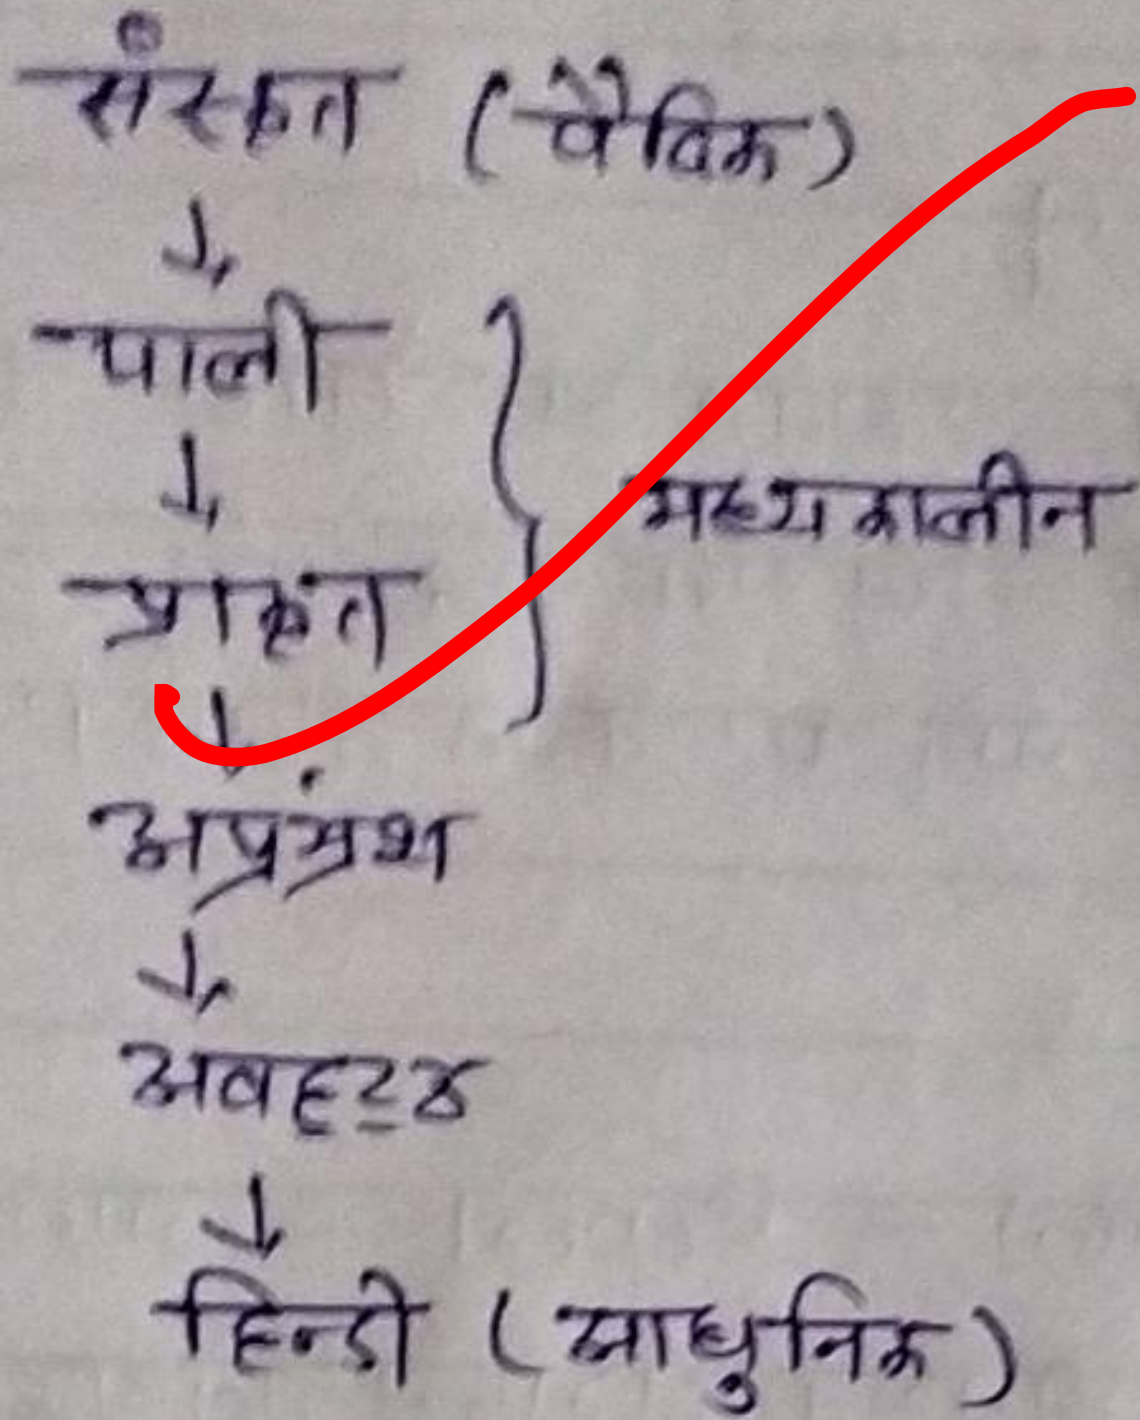 संस्कृत (वैदिक)
↓
पाली
↓
प्राकृत
मध्यकालीन
↓
अप्रभ्रंश
↓
अवहट्ठ
↓
हिन्दी (आधुनिक)